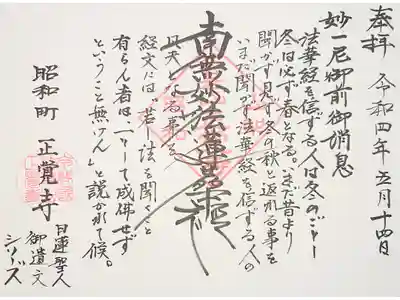 奉拝 令和四年五月十四日
妙一尼御前御消息
法華経を信ずる人は冬のごとし
冬は必ず春となる。いまだ昔より
聞かず見ず冬の秋と返れる事を
いまだ聞かず法華経を信ずる人の
南無妙法蓮華経
凡夫となる事を。
経文には「若し法を聞くこと
有らん者は一として成佛せず
ということ無けん」と説かれて候。
昭和町 正覚寺
日蓮聖人
御遺文
シリーズ